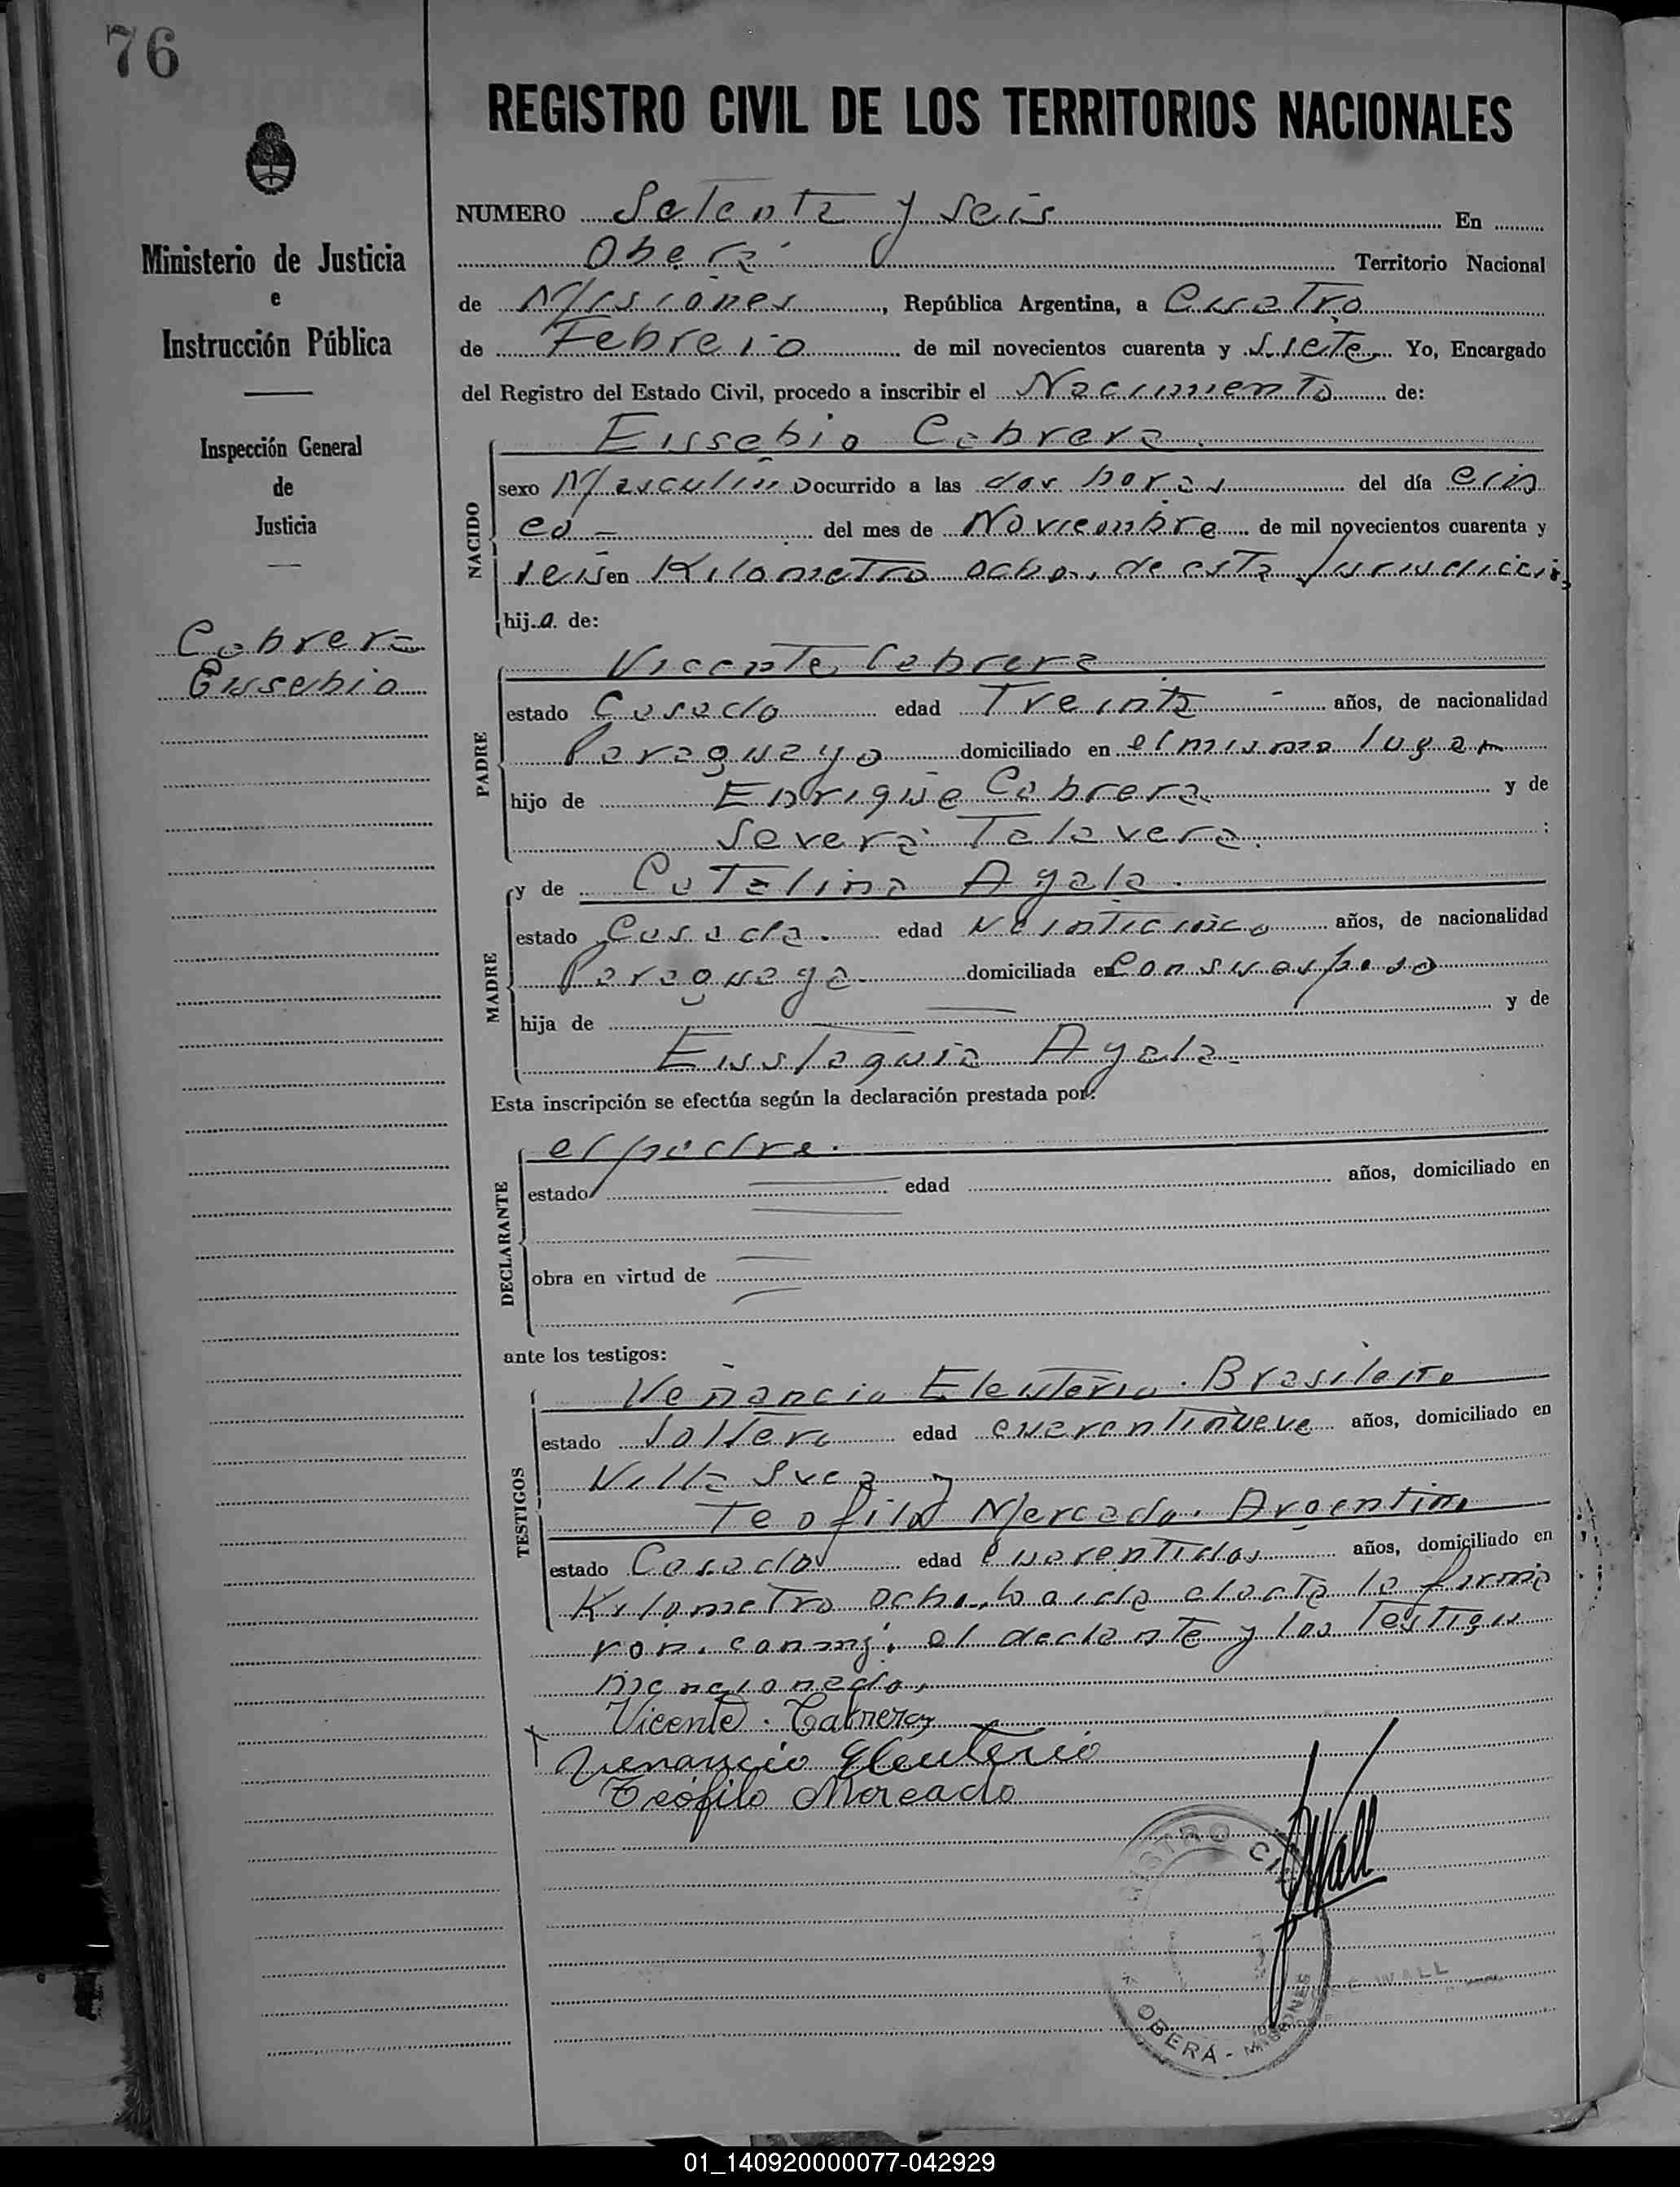 76
REGISTRO CIVIL DE LOS TERRITORIOS NACIONALES
Ministerio de Justicia
e
Instrucción Pública
Inspección General
de
Justicia
Cabrera
Eusebio
NUMERO Setenta y seis En
Oberá Territorio Nacional
de Misiones, República Argentina, a Cuatro
de Febrero de mil novecientos cuarenta y siete Yo, Encargado
del Registro del Estado Civil, procedo a inscribir el Nacimiento de:
NACIDO
Eusebio Cabrera.
sexo Masculino ocurrido a las dos horas del día cin
co - del mes de Noviembre de mil novecientos cuarenta y
seis en Kilometro ocho, de esta Jurisdiccion,
hijo de:
PADRE
Vicente Cabrera
estado Casado edad Treinta - años, de nacionalidad
Paraguayo domiciliado en el mismo lugar
hijo de Enrique Cabrera y de
Severa Talavera. ;
MADRE
y de Catalina Ayala.
estado Casada. edad Veinticinco años, de nacionalidad
Paraguaya domiciliada en Con su esposo
hija de y de
Eustaquia Ayala-
Esta inscripción se efectúa según la declaración prestada por:
DECLARANTE
el padre.
estado edad años, domiciliado en
obra en virtud de
ante los testigos:
TESTIGOS
Venancio Eleuterio. Brasileño
estado Soltero edad cuarentinueve años, domiciliado en
Villa Svea y
Teofilo Mercado. Argentino
estado Casado edad Cuarentidos años, domiciliado en
Kilometro ocho. Leida el acta la firma
ron. conmigo el declante y los Testigos
mencionados
Vicente. Cabrera
Venancio Eleuterio
Teófilo Mercado
JWall
REGISTRO CIVIL
OBERÁ - MISIONES
WALL
01_140920000077-042929